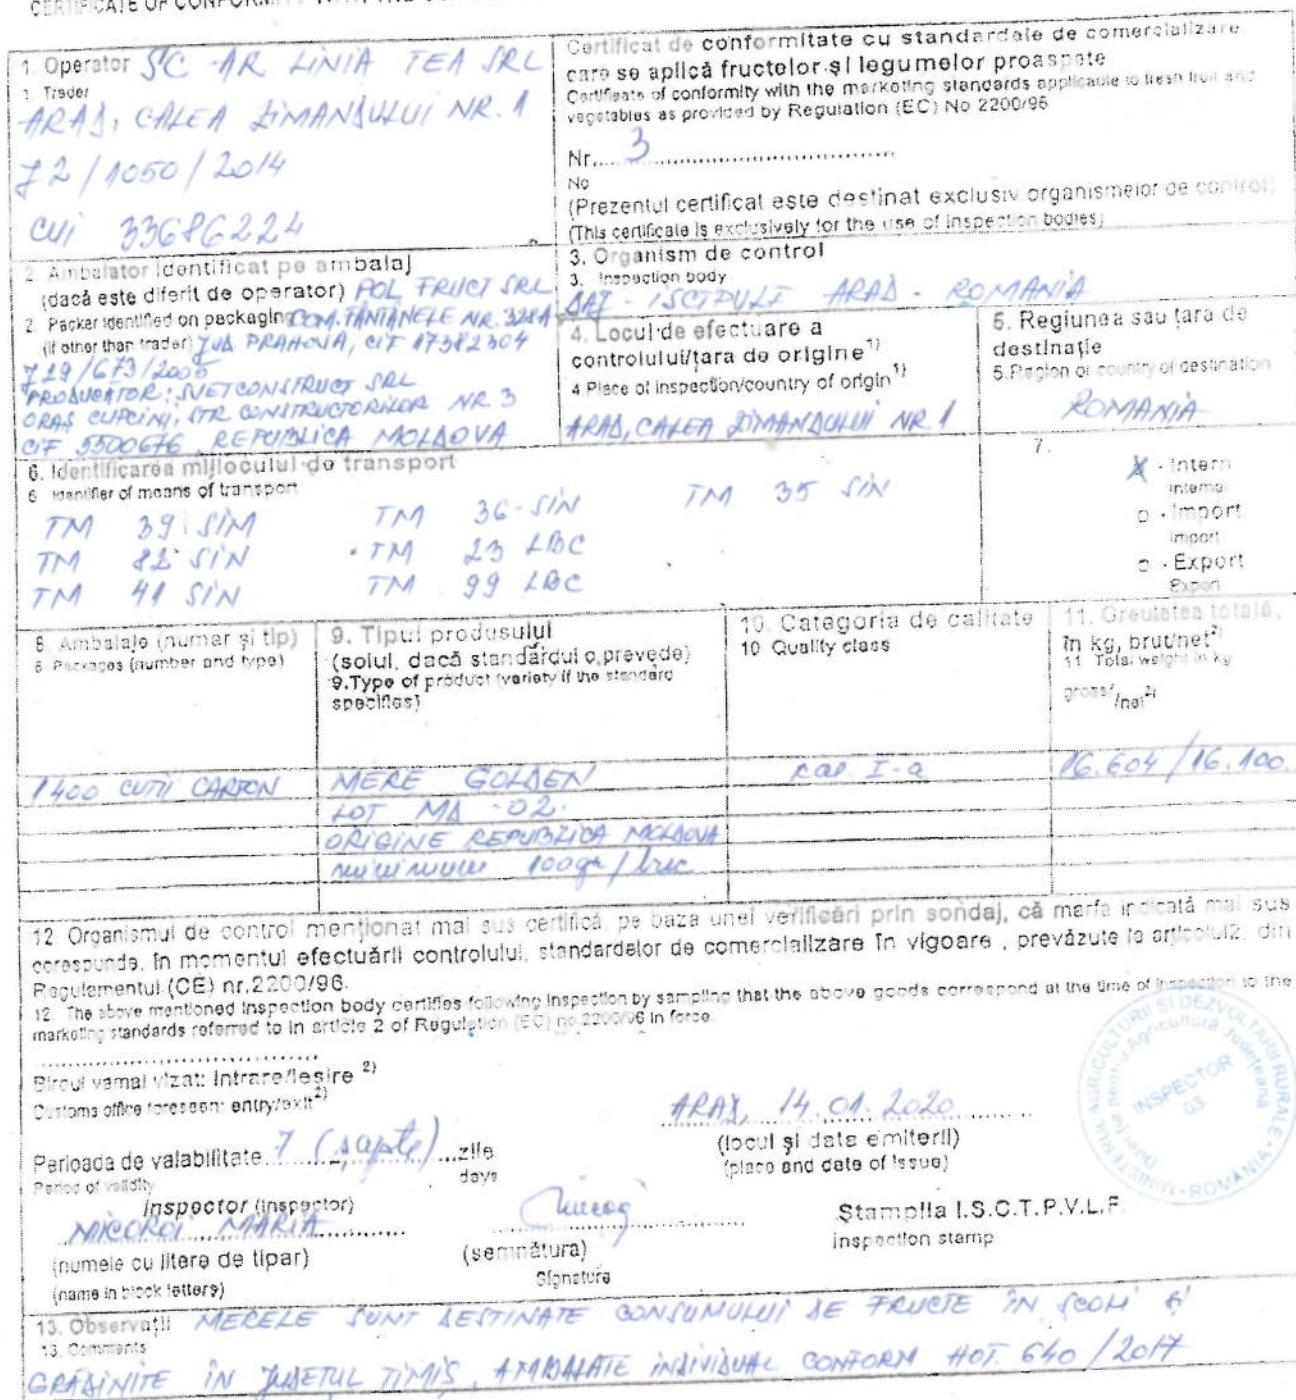 CERTIFICATE OF CONFORMITY
1. Operator SC AR LINIA TEA SRL
1. Trader
ARAD, CALEA ZIMANDULUI NR. 1
J2/1050/2014
CUI 33686224
Certificat de conformitate cu standardele de comercializare
care se aplică fructelor și legumelor proaspete
Certificate of conformity with the marketing standards applicable to fresh fruit and
vegetables as provided by Regulation (EC) No 2200/96
Nr..... 3 ..................................
No
(Prezentul certificat este destinat exclusiv organismelor de control)
(This certificate is exclusively for the use of inspection bodies)
2. Ambalator identificat pe ambalaj
(dacă este diferit de operator) POL FRUCT SRL
2. Packer identified on packaging COM. FANTANELE NR. 328A
(if other than trader) JUD PRAHOVA, CIF 17382304
J29/673/2005
PRODUCATOR: SVETCONSTRUCT SRL
ORAȘ CUPCINI, STR CONSTRUCTORILOR NR 3
CIF 5500676, REPUBLICA MOLDOVA
3. Organism de control
3. Inspection body
DAJ - ISCTPVLF ARAD - ROMANIA
4. Locul de efectuare a
controlului/țara de origine1)
4.Place of inspection/country of origin1)
ARAD, CALEA ZIMANDULUI NR 1
5. Regiunea sau țara de
destinație
5.Region or country of destination
ROMANIA
6. Identificarea mijlocului de transport
6 Identifier of means of transport
TM 39 SIM TM 36-SIN TM 35 SIN
TM 82 SIN TM 23 LBC
TM 41 SIN TM 99 LBC
7.
X - Intern
Internal
o - Import
Import
o - Export
Export
8. Ambalaje (numar și tip)
8 Packages (number and type)
9. Tipul produsului
(soiul, dacă standardul o prevede)
9.Type of product (variety if the standard
specifies)
10. Categoria de calitate
10 Quality class
11. Greutatea totală,
în kg, brut/net2)
11 Total weight in kg
gross/ /net2)
1400 CUTII CARTON MERE GOLDEN cal. I-a 16.604/16.100.
LOT MD-02.
ORIGINE REPUBLICA MOLDOVA
minimum 100gr/buc
12. Organismul de control menționat mai sus certifică, pe baza unei verificări prin sondaj, că marfa indicată mai sus
corespunde, în momentul efectuării controlului, standardelor de comercializare în vigoare , prevăzute la articolul2. din
Regulamentul (CE) nr.2200/96.
12. The above mentioned inspection body certifies following inspection by sampling that the above goods correspond at the time of inspection to the
marketing standards referred to in article 2 of Regulation (EC) no 2200/96 in force.
Biroul vamal vizat: Intrare/Ieșire 2)
Customs office foreseen: entry/exit2)
Perioada de valabilitate 7 (șapte) zile
Period of validity days
ARAD, 14.01.2020
(locul și data emiterii)
(place and date of issue)
Inspector (inspector)
MICOROI MARIA
(numele cu litere de tipar)
(name in block letters)
(semnătura)
Signature
Ștampila I.S.C.T.P.V.L.F.
inspection stamp
MINISTERUL AGRICULTURII SI DEZVOLTARII RURALE • ROMÂNIA •
Direcția pentru Agricultură Județeană
INSPECTOR
03
13. Observații MERELE SUNT DESTINATE CONSUMULUI DE FRUCTE ÎN ȘCOLI ȘI
13. Comments
GRĂDINIȚE ÎN JUDEȚUL TIMIȘ, AMBALATE INDIVIDUAL CONFORM HOT. 640/2017